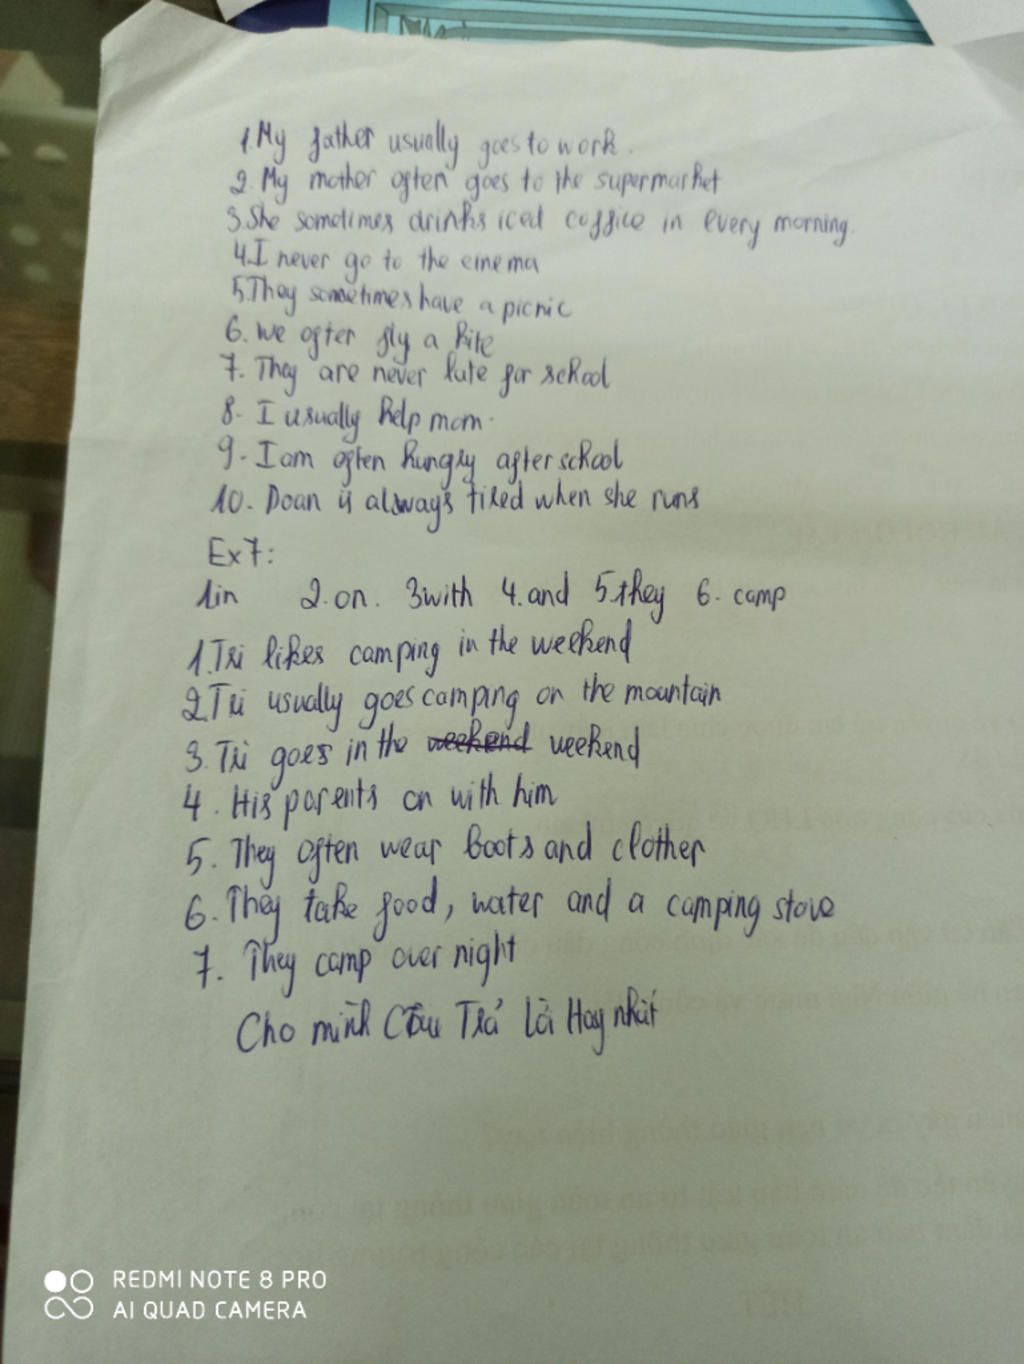 1. My father usually goes to work.
2. My mother often goes to the supermarket
3. She sometimes drinks iced coffice in every morning.
4. I never go to the cinema
5. They sometimes have a picnic
6. We ofter fly a kite
7. They are never late for school
8. I usually help mom.
9. I am often hungry after school
10. Doan is always tired when she runs
Ex7:
1in 2. on. 3with 4. and 5.they 6. camp
1. Tri likes camping in the weekend
2. Tri usually goes camping on the mountain
3. Tri goes in the weekend weekend
4. His parents on with him
5. They often wear boots and clother
6. They take food, water and a camping stove
7. They camp over night
Cho mình Câu Trả là Hay nhất
REDMI NOTE 8 PRO
AI QUAD CAMERA